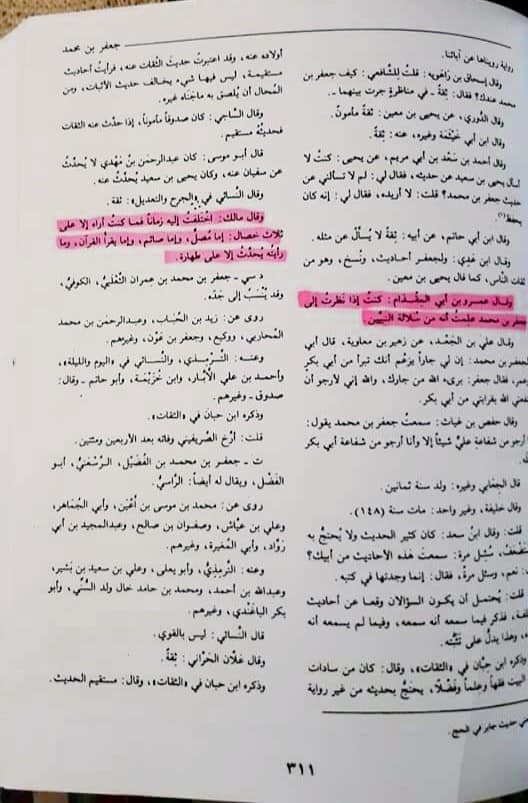 جعفر بن محمد
رواية رويناها عن آبائنا.
وقال إسحاق بن راهويه: قلتُ للشافعي: كيف جعفر بن
محمد عندك؟ فقال: ثقةٌ ـ في مناظرةٍ جرت بينهما ـ.
وقال الدُّوري، عن يحيى بن معين: ثقةٌ مأمونٌ.
وقال ابن أبي خَيْثَمَة وغيره، عنه: ثِقةٌ.
وقال أحمد بن سَعْد بن أبي مريم، عن يحيى: كنتُ لا
أسأل يحيى بن سعيد عن حديثه، فقال لي: لم لا تسألني عن
حديث جعفر بن محمد؟ قلت: لا أريده، فقال لي: إنه كان
يحفظ(١)
وقال ابن أبي حاتم، عن أبيه: ثِقةٌ لا يُسألُ عن مثله.
وقال ابن عَدِي: ولجعفر أحاديث، ونُسَخ، وهو من
ثقات الناس، كما قال يحيى بن معين.
وقال عمرو بن أبي المِقْدَام: كنتُ إذا نظرتُ إلى
جعفر بن محمد علمتُ أنه من سُلالة النبيّين.
وقال علي بن الجَعْد، عن زهير بن معاوية، قال أبي
لجعفر بن محمد: إن لي جاراً يزعُم أنك تبرأ من أبي بكرٍ
وعمر، فقال جعفر: برىء الله من جارك، والله إني لأرجو أن
ينفعني الله بقرابتي من أبي بكر.
وقال حفص بن غياث: سمعتُ جعفر بن محمد يقول:
ما أرجو من شفاعة عليٍّ شيئاً إلا وأنا أرجو من شفاعة أبي بكر
قال الجِعَابي وغيره: ولد سنة ثمانين.
وقال خليفة، وغير واحد: مات سنة (١٤٨).
قلت: وقال ابنُ سعد: كان كثير الحديث ولا يُحتجُّ به
ويُستَضْعَف، سُئل مرة: سمعتَ هذه الأحاديث من أبيك؟
نعم، وسئل مرةً، فقال: إنما وجدتها في كتبه.
قلت: يُحتمل أن يكون السؤالان وقعا عن أحاديث
مختلفة، فذكر فيما سمعه أنه سمعه، وفيما لم يسمعه أنه
وجده، وهذا يدلُّ على تثبُّته.
وذكره ابن حِبان في «الثقات»، وقال: كان من سادات
البيت فقهاً وعِلماً وفَضْلاً، يحتجُّ بحديثه من غير رواية
في حديث جابر في الحج.
أولاده عنه، وقد اعتبرتُ حديثَ الثقات عنه، فرأيتُ أحاديثَ
مستقيمة، ليس فيها شيء يخالف حديث الأثبات، ومن
المُحال أن يُلصق به ما جَناه غيره.
وقال الساجي: كان صدوقاً مأموناً، إذا حدّث عنه الثقات
فحديثُه مستقيم.
قال أبو موسى: كان عبدالرحمن بنُ مَهْدي لا يُحدِّثُ
عن سفيان عنه، وكان يحيى بن سعيد يُحدِّثُ عنه.
وقال النسائي في «الجرح والتعديل»: ثقة.
وقال مالك: اختلفتُ إليه زماناً فما كنتُ أراه إلا على
ثلاث خصال: إما مُصلٍّ، وإما صائم، وإما يقرأ القرآن، وما
رأيته يُحدِّثُ إلا على طهارة.
د س ـ جعفر بن محمد بن عِمران الثَّعْلَبيُّ، الكوفيُّ،
وقد يُنْسَبُ إلى جَدِّه.
روى عن: زيد بن الحُبَاب، وعبدالرحمن بن محمد
المحاربي، ووكيع، وجعفر بن عَوْن، وغيرهم.
وعنه: التِّرمذي، والنَّسائي في «اليوم والليلة»،
وأحمد بن علي الأبَّار، وابن خُزَيْمَة، وأبو حاتم ـ وقال:
صدوق ـ وغيرهم.
وذكره ابن حبان في «الثقات».
قلت: أرَّخ الصَّريفيني وفاته بعد الأربعين ومئتين.
ت ـ جعفر بن محمد بن الفُضَيْل، الرَّسْعَنيُّ، أبو
الفَضْل، ويقال له أيضاً: الرَّاسيُّ.
روى عن: محمد بن موسى بن أَعْيَن، وأبي الجُمَاهر،
وعلي بن عيَّاش، وصفوان بن صالح، وعبدالمجيد بن أبي
رَوَّاد، وأبي المُغيرة، وغيرهم.
وعنه: التِّرمِذيُّ، وأبو يعلى، وعلي بن سعيد بن بَشير،
وعبدالله بن أحمد، ومحمد بن حامد خال ولد السُّنّي، وأبو
بكر الباغَندي، وغيرهم.
قال النَّسائي: ليس بالقوي.
وقال عَلَّان الحَرَّاني: ثِقةٌ.
وذكره ابن حبان في «الثقات»، وقال: مستقيم الحديث.
٣١١